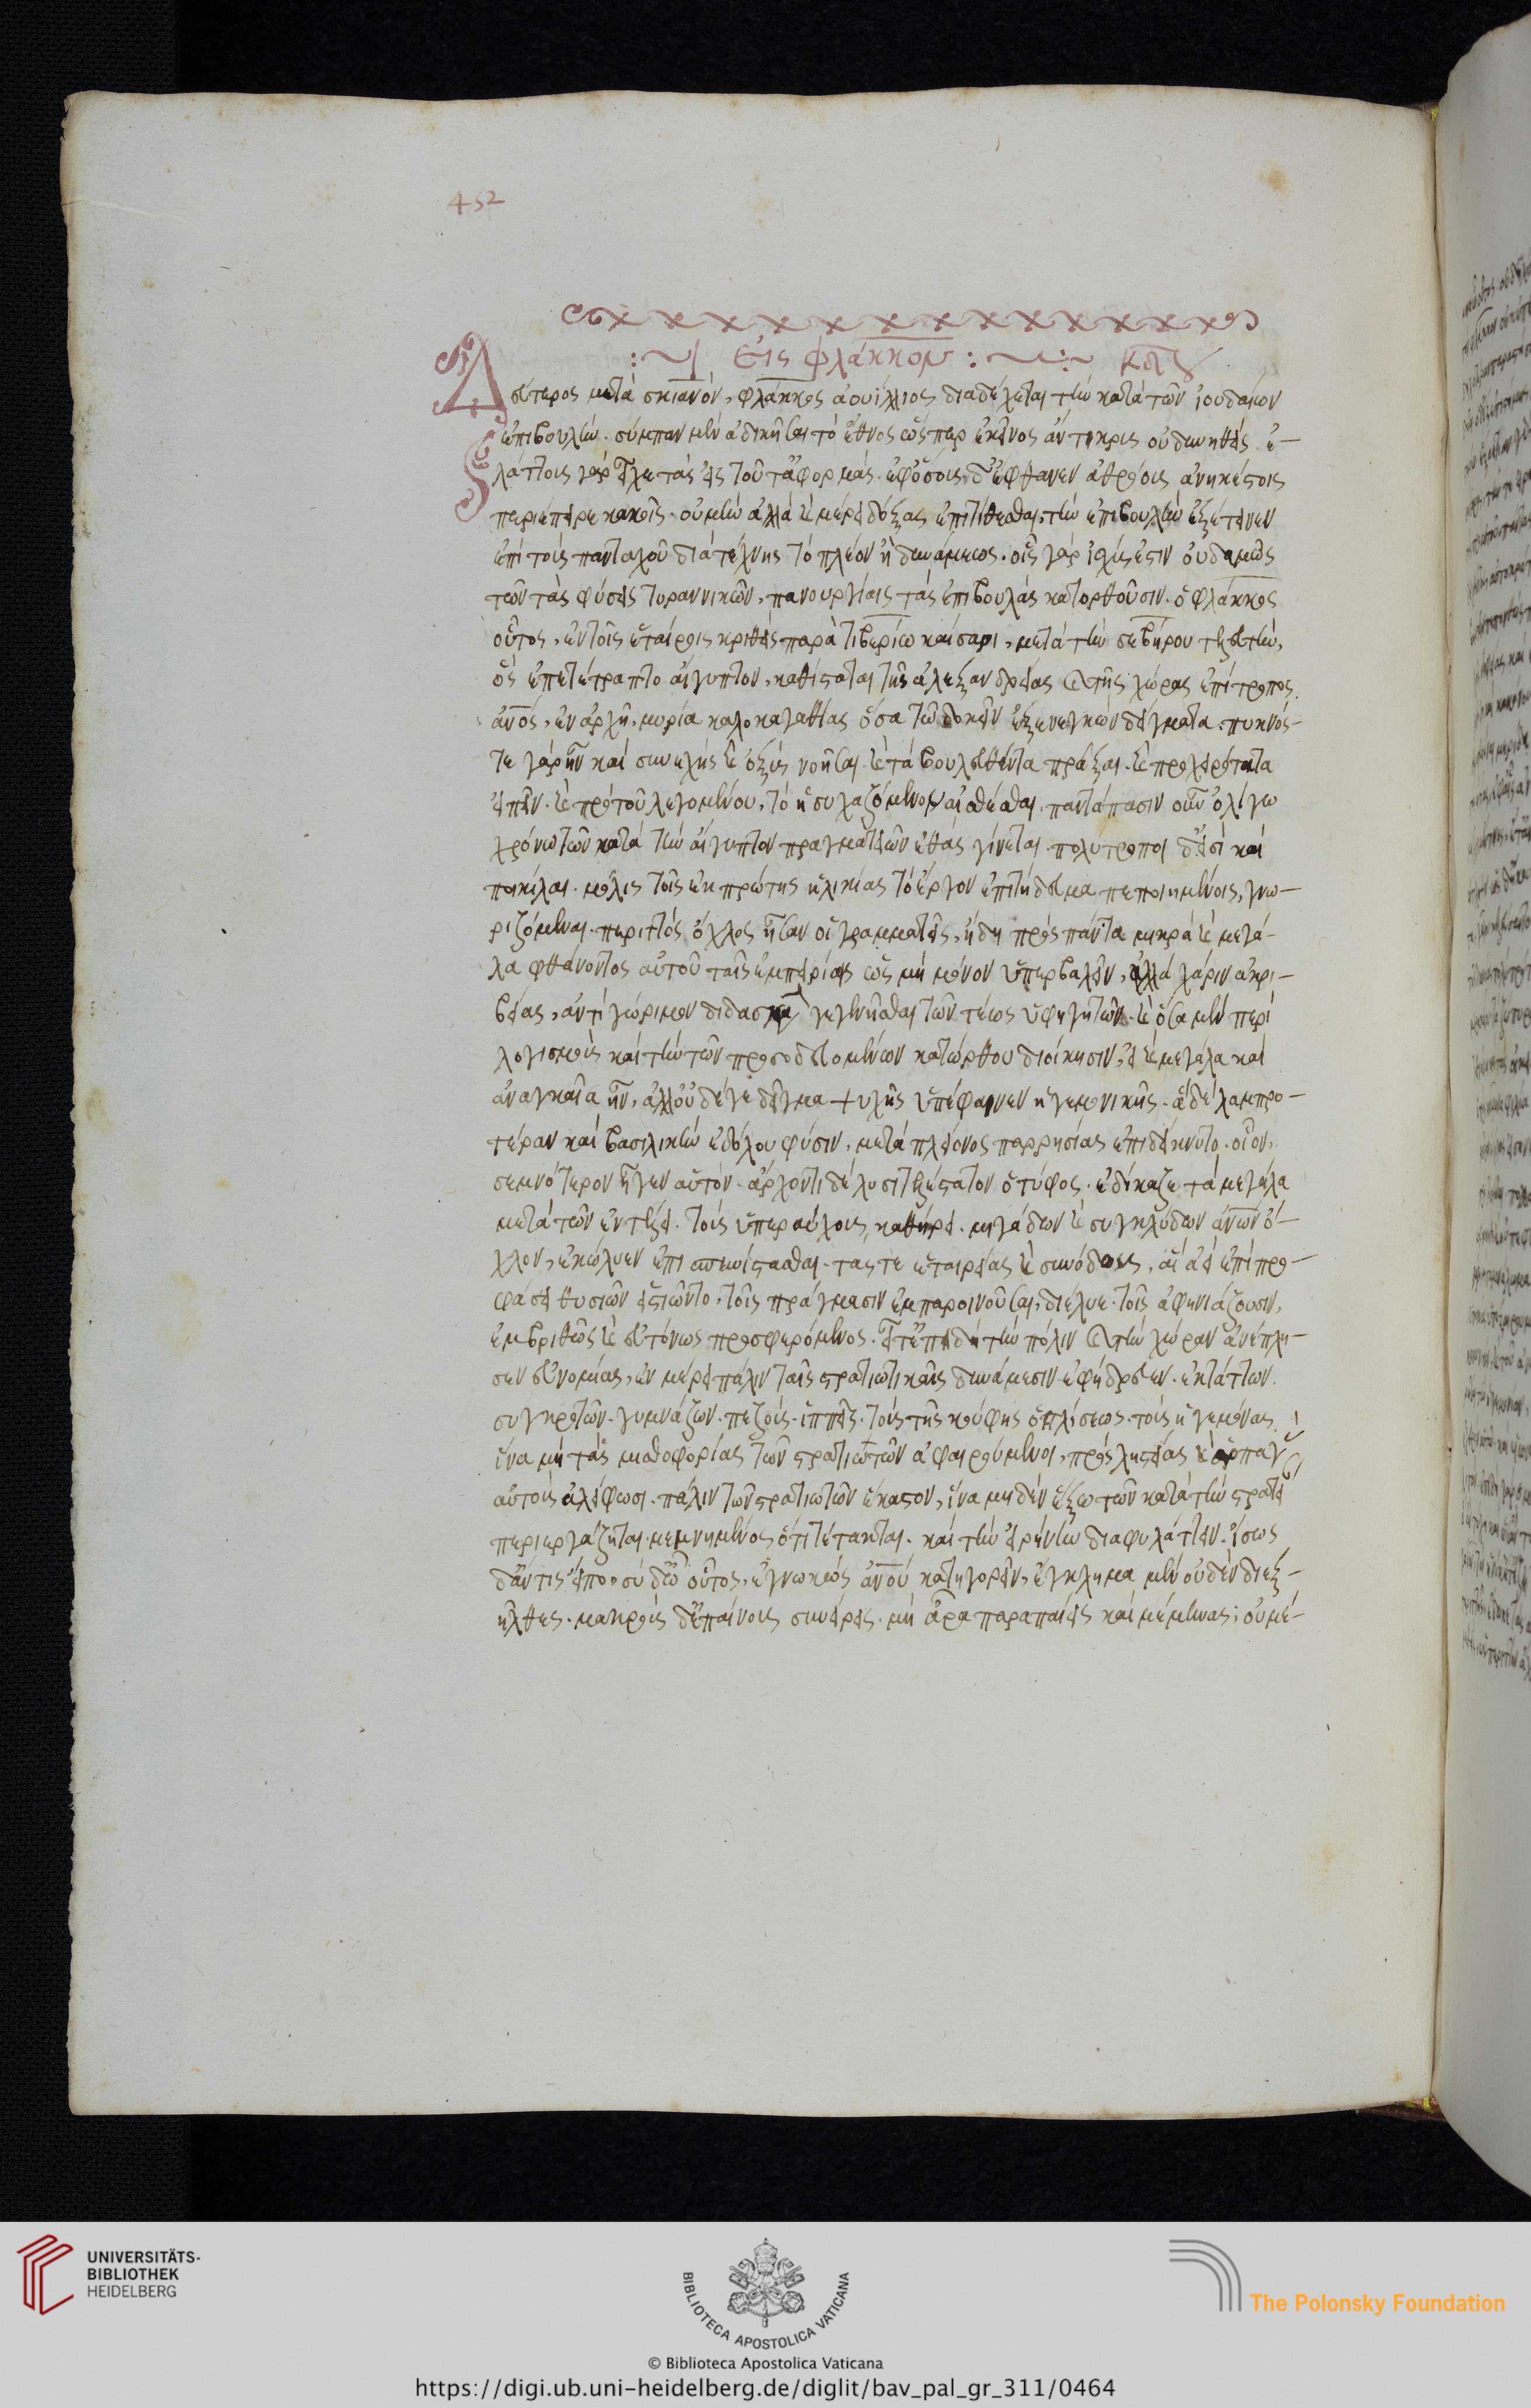 452
Εἰς φλάκκον
Δεύτερος μετὰ σηιανὸν, φλάκκος ἀουΐλλιος διαδέχεται τὴν κατὰ τῶν ἰουδαίων
ἐπιβουλὴν. σύμπαν μὲν ἀδικῆσαι τὸ ἔθνος ὥσπερ ἐκεῖνος ἄντικρις οὐ δυνηθεὶς. ἐ-
λάττοις γὰρ εἶχε τὰς εἰς τοῦτ' ἀφορμάς. ἐφ' ὅσοις δ' ἔφθανεν ἀθρόοις ἀνηκέστοις
περιέπειρε κακοῖς. οὐ μὴν ἀλλὰ καὶ μέρει δόξας ἐπιτίθεσθαι, τὴν ἐπιβουλὴν ἐξέτεινεν
ἐπὶ τοὺς πανταχοῦ διὰ τέχνης τὸ πλέον ἢ δυνάμεως. οἷς γὰρ ἰσχύς ἐστιν οὐδαμῶς
τῶν τὰς φύσεις τυραννικῶν, πανουργίαις τὰς ἐπιβουλὰς κατορθοῦσιν. ὁ φλάκκος
οὗτος, ἐν τοῖς ἑταίροις κριθεὶς παρὰ τιβερίω καίσαρι, μετὰ τὴν σεβήρου τελευτὴν,
ὃς ἐπετέτραπτο αἴγυπτον, καθίσταται τῆς ἀλεξανδρείας καὶ τῆς χώρας ἐπίτροπος.
ἀνος, ἐν ἀρχῆ, μυρία καλοκαγαθίας ὅσα τῶ δοκεῖν ἐξενεγκὼν δείγματα. πυκνός
τε γὰρ ἦν καὶ συνεχὴς καὶ ὀξὺς νοῆσαι. καὶ τὰ βουλευθέντα πρᾶξαι. καὶ προχειρότατα
εἰπεῖν. καὶ πρὸ τοῦ λεγομένου, τὸ ἡσυχαζόμενον αἰσθέσθαι. παντάπασιν οὖν ὀλίγω
χρόνω τῶν κατὰ τὴν αἴγυπτον πραγματειῶν ἐθὰς γίνεται. πολύτροποι δ' εἰσὶ καὶ
ποικίλαι. μόλις τοῖς ἐκ πρώτης ἡλικίας τὸ ἔργον ἐπιτήδευμα πεποιημένοις, γνω-
ριζόμεναι. περιττὸς ὄχλος ἦσαν οἱ γραμματεῖς, ἤδη πρὸς πάντα μικρὰ καὶ μεγά-
λα φθάνοντος αὐτοῦ ταῖς ἐμπειρίαις ὡς μὴ μόνον ὑπερβαλεῖν, ἀλλὰ χάριν ἀκρι-
βείας, ἀντὶ γνωρίμου διδασκαλ γεγενῆσθαι τῶν τέως ὑφηγητῶν. καὶ ὅσα μὲν περὶ
λογισμοὺς καὶ τὴν τῶν προσοδευομένων κατώρθου διοίκησιν, εἰ καὶ μεγάλα καὶ
ἀναγκαῖα ἦν, ἀλλ' οὐδέν γε δεῖγμα ψυχῆς ὑπέφαινεν ἡγεμονικῆς. ἃ δὲ λαμπρο-
τέραν καὶ βασιλικὴν ἐδήλου φύσιν, μετὰ πλείονος παρρησίας ἐπεδείκνυτο. οἷον,
σεμνότερον ἦγεν αὑτόν. ἄρχοντι δὲ λυσιτελέστατον ὁ τύφος. ἐδίκαζε τὰ μεγάλα
μετὰ τῶν ἐν τέλει. τοὺς ὑπεραύχους, καθήρει. μιγάδων καὶ συγκλύδων ἀνων ὄ-
χλον, ἐκώλυεν ἐπισυνίστασθαι. τάς τε ἑταιρείας καὶ συνόδους, αἳ ἀεὶ ἐπὶ προ-
φάσει θυσιῶν εἱστιῶντο, τοῖς πράγμασιν ἐμπαροινοῦσαι, διέλυε. τοῖς ἀφηνιάζουσιν,
ἐμβριθῶς καὶ εὐτόνως προσφερόμενος. εἶτ' ἐπειδὴ τὴν πόλιν καὶ τὴν χώραν ἀνέπλη-
σεν εὐνομίας, ἐν μέρει πάλιν ταῖς στρατιωτικαῖς δυνάμεσιν ἐφήδρευεν. ἐκτάττων.
συγκροτῶν. γυμνάζων. πεζοὺς. ἱππεῖς. τοὺς τῆς κούφης ὁπλίσεως. τοὺς ἡγεμόνας
ἵνα μὴ τὰς μισθοφορίας τῶν στρατιωτῶν ἀφαιρούμενοι, πρὸς ληστείας καὶ ἁρπαγὰς
αὐτοὺς ἀλείφωσι. πάλιν τῶν στρατιωτῶν ἕκαστον, ἵνα μηδὲν ἔξω τῶν κατὰ τὴν στρατεί
περιεργάζηται. μεμνημένος ὅτι τέτακται. καὶ τὴν εἰρήνην διαφυλάττειν. ἴσως
δ' ἄν τις εἴποι, σὺ δ' ὦ οὗτος, ἐγνωκὼς ἀνου κατηγορεῖν, ἔγκλημα μὲν οὐδὲν διεξ-
ῆλθες. μακροὺς δ' ἐπαίνους συνείρεις. μὴ ἄρα παραπαίεις καὶ μέμηνας; οὐ μέ-
UNIVERSITÄTS-
BIBLIOTHEK
HEIDELBERG
BIBLIOTECA APOSTOLICA VATICANA
The Polonsky Foundation
© Biblioteca Apostolica Vaticana
https://digi.ub.uni-heidelberg.de/diglit/bav_pal_gr_311/0464